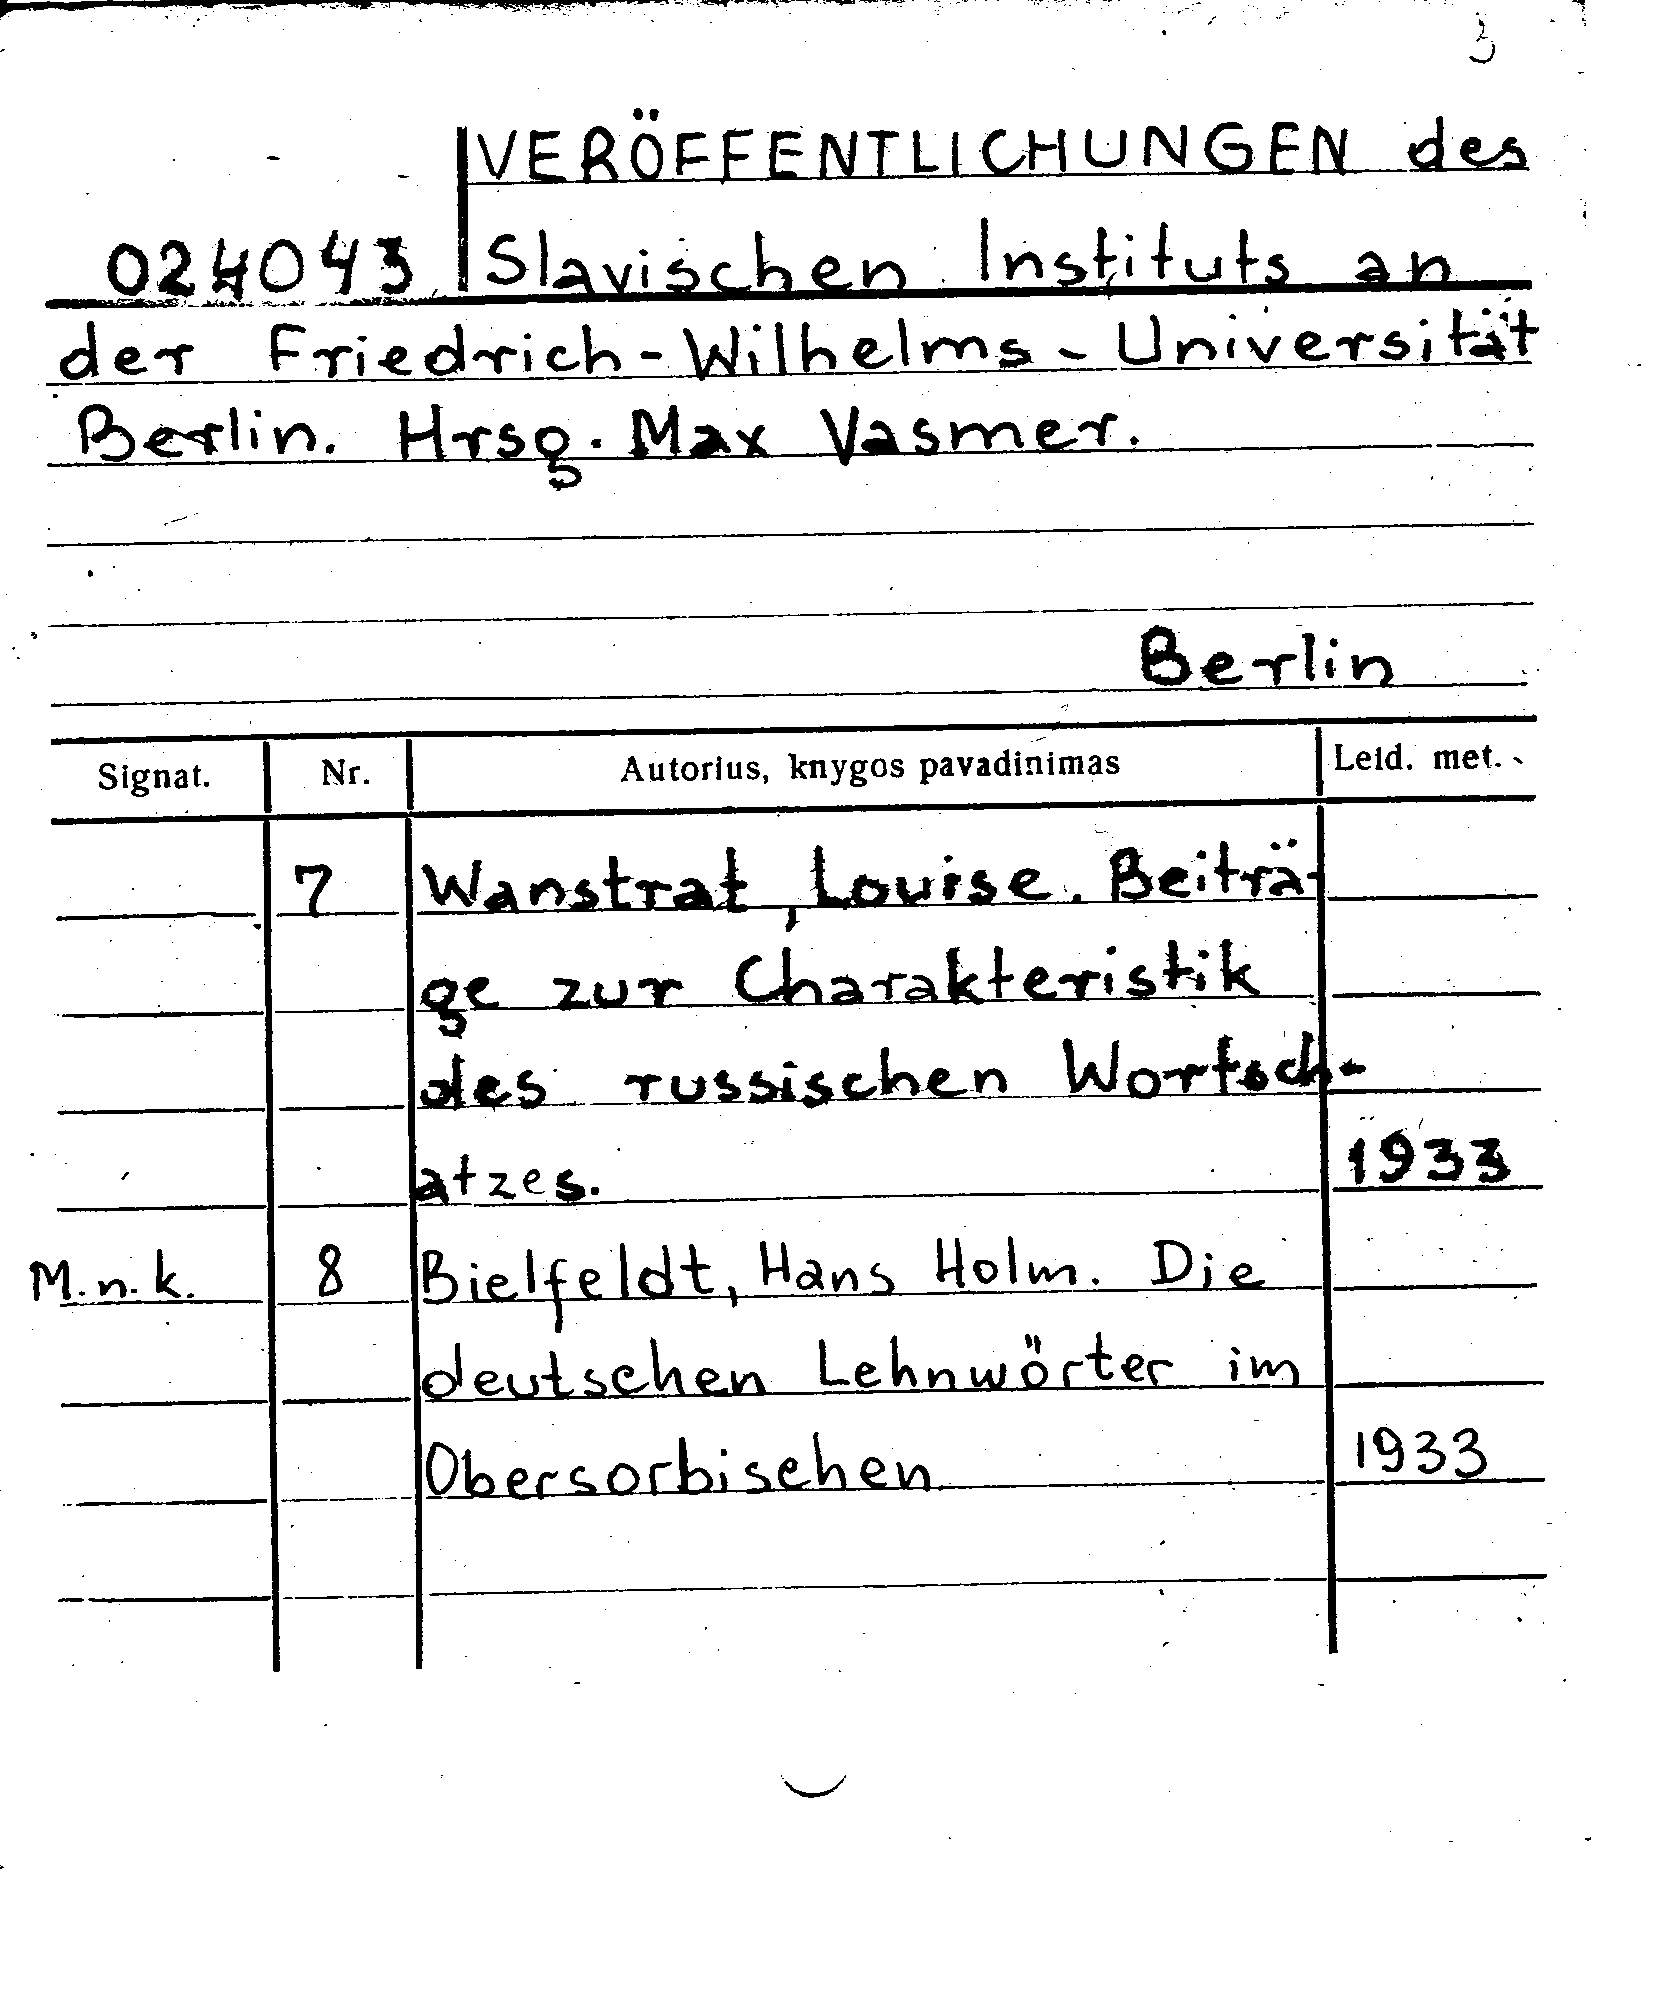 3
VERÖFFENTLICHUNGEN des
024043 Slavischen Instituts an
der Friedrich-Wilhelms-Universität
Berlin. Hrsg. Max Vasmer.
Berlin
Signat. Nr. Autorius, knygos pavadinimas Leid. met.
7 Wanstrat, Louise. Beiträ-
ge zur Charakteristik
des russischen Wortsch-
atzes. 1933
M.n.k. 8 Bielfeldt, Hans Holm. Die
deutschen Lehnwörter im
Obersorbischen 1933